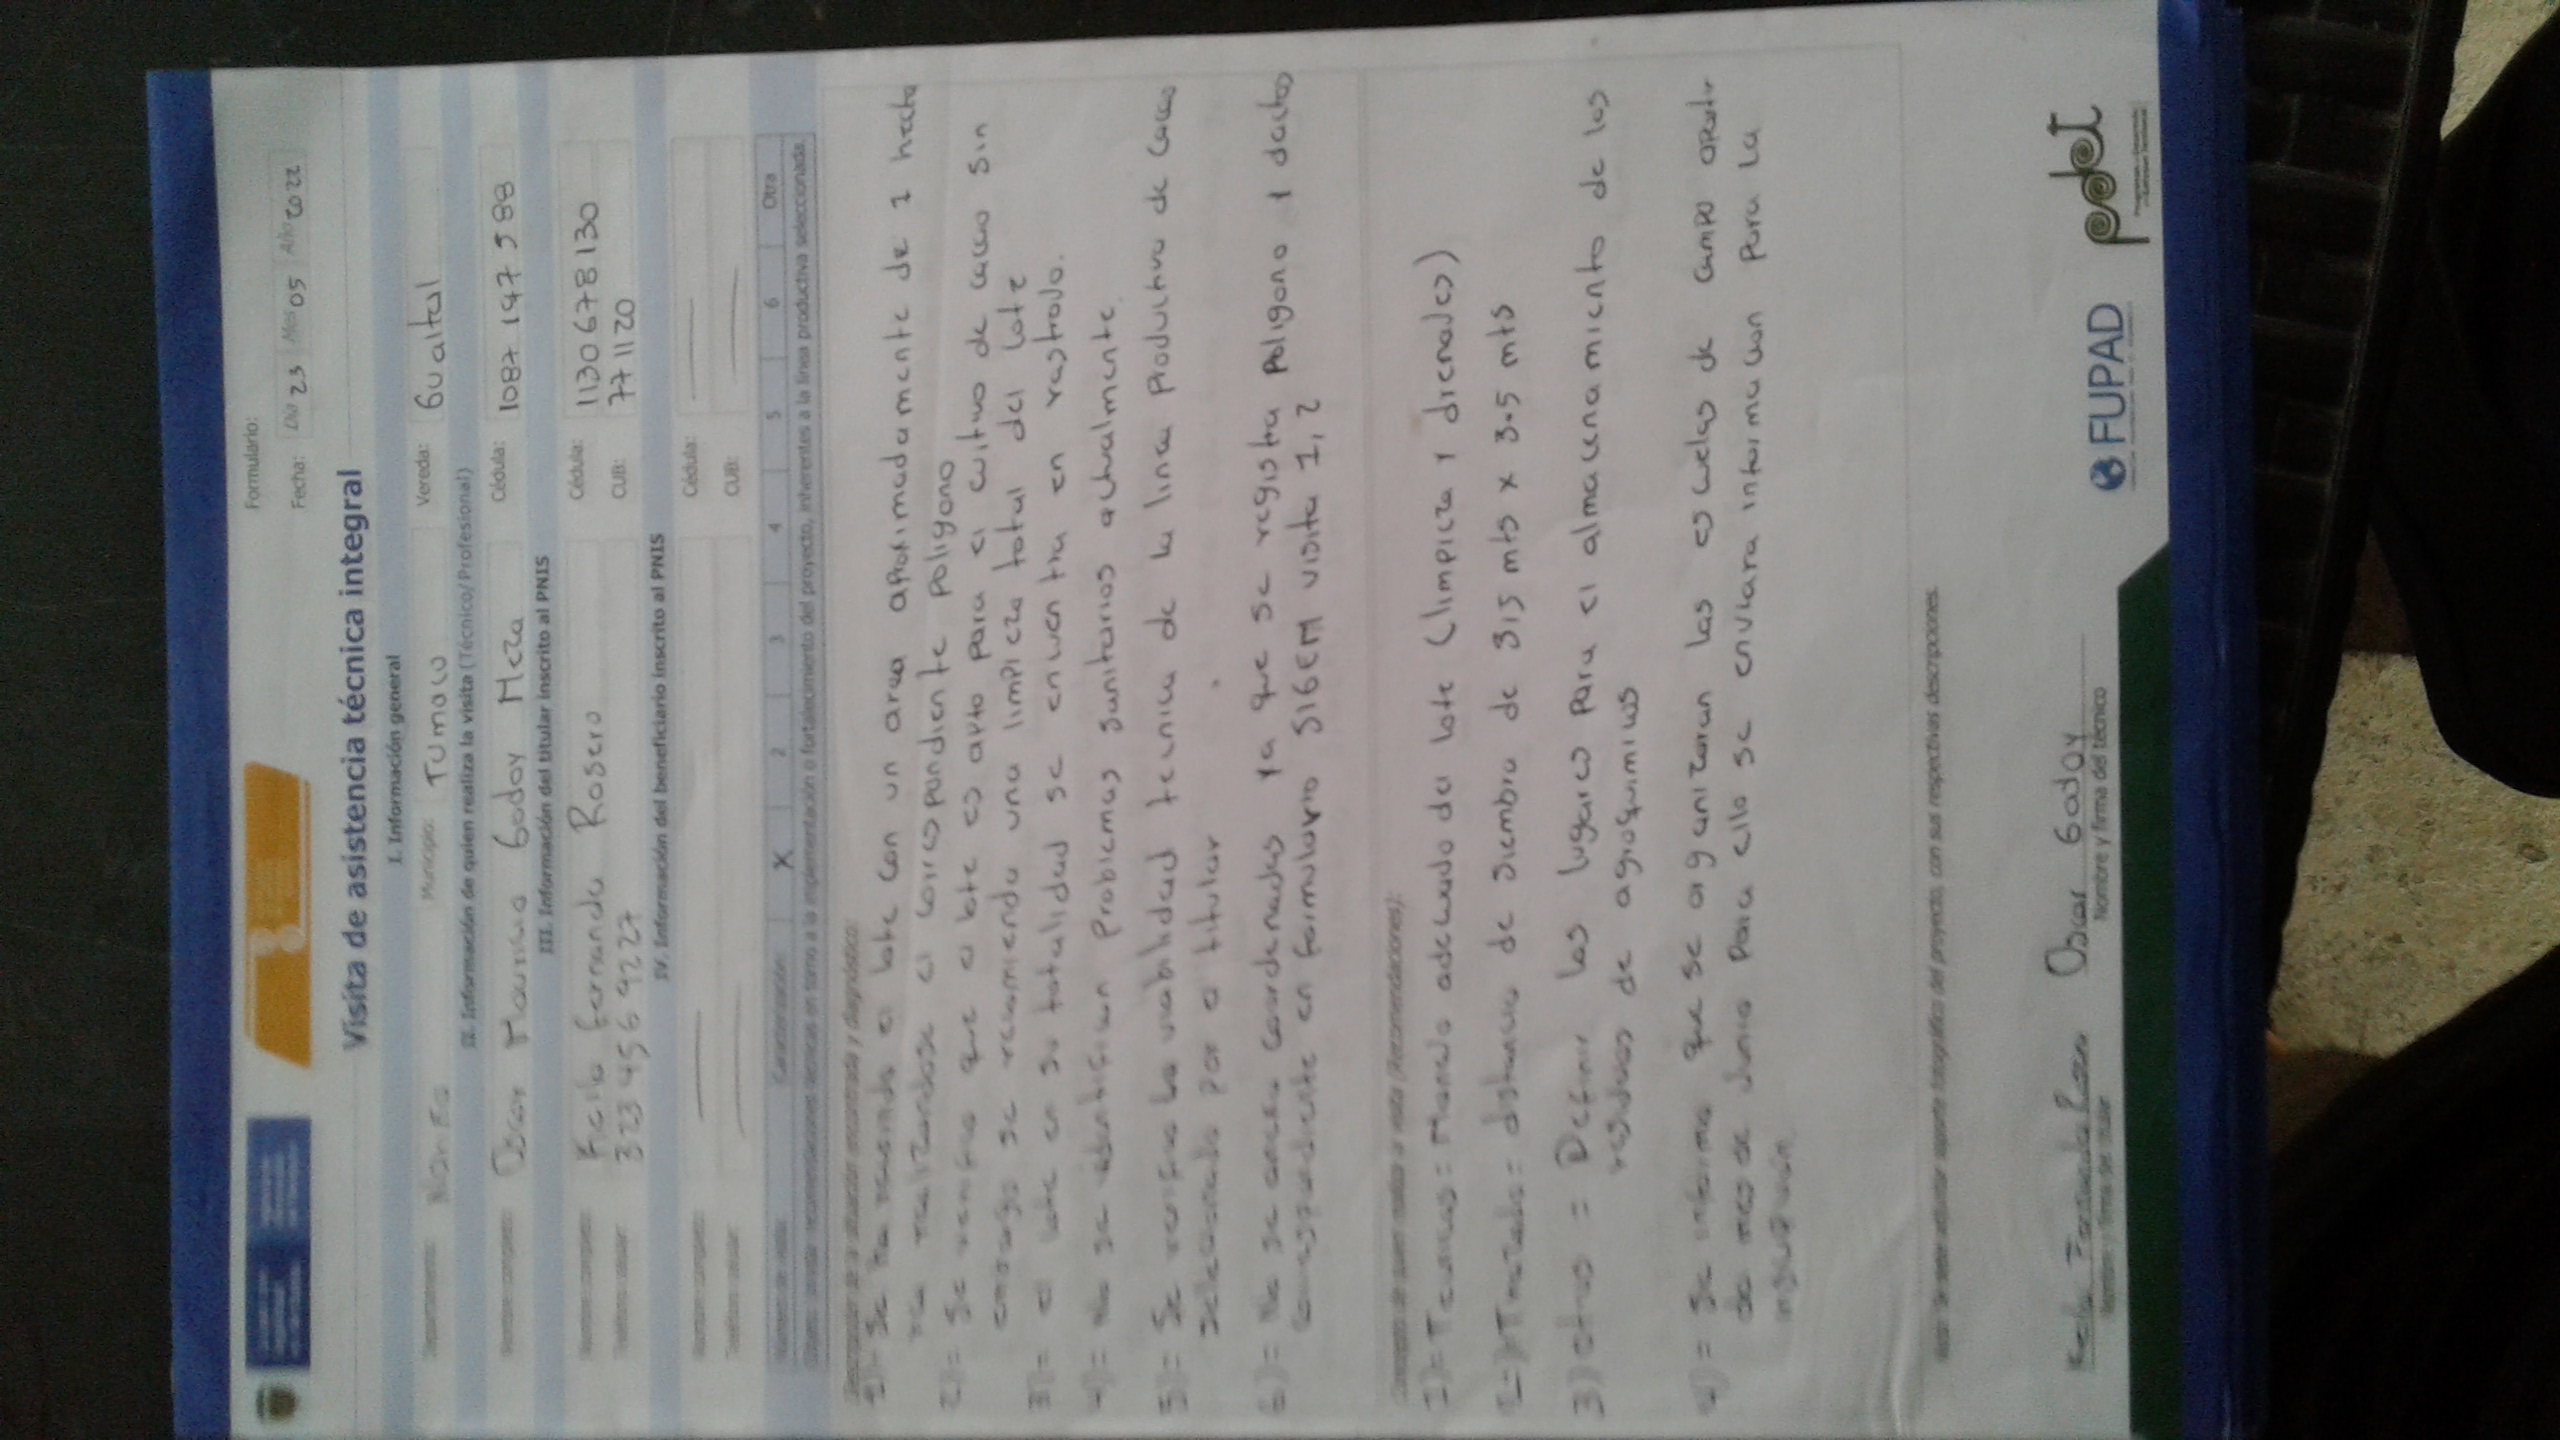 Formulario:
Fecha: Día 23 Mes 05 Año 2022
Visita de asistencia técnica integral
I. Información general
Departamento: Nariño Municipio: Tumaco Vereda: Gualtal
II. Información de quien realiza la visita (Técnico/Profesional)
Nombre completo: Oscar Mauricio Godoy Meza Cédula: 1087197588
III. Información del titular inscrito al PNIS
Nombre completo: Keila Fernanda Rosero Cédula: 1130678130
Teléfono celular: 3234569227 CUB: 771120
IV. Información del beneficiario inscrito al PNIS
Nombre completo: Cédula:
Teléfono celular: CUB:
Número de visita: Caracterización: X 2 3 4 5 6 Otra
recomendaciones técnicas en torno a la implementación o fortalecimiento del proyecto, inherentes a la línea productiva seleccionada.
Descripción de la situación encontrada y diagnóstico:
1)= Se ha reconocido el lote con un area aproximadamente de 1 hecta
rea realizandose el correspondiente poligono
2)= Se verifico que el lote es apto para el cultivo de cacao sin
embargo se recomienda una limpieza total del lote
3)= el lote en su totalidad se encuentra en rastrojo.
4)= No se identifican problemas sanitarios actualmente.
5)= Se verifico la viabilidad tecnica de la linea productiva de cacao
seleccionada por el titular
6)= No se anexa coordenadas ya que se registra poligono y dactos
correspondiente en formulario SIGEM visita 1,2
Concepto de quien realiza la visita (Recomendaciones):
1)= Tecnicas: Manejo adecuado del lote (limpieza y drenajes)
2=) Trazado= distancia de siembra de 3,5 mts x 3.5 mts
3) otros = Definir los lugares para el almacenamiento de los
residuos de agroquimicos
4)= Se informa que se organizaran las escuelas de campo apartir
del mes de Junio para ello se enviara informacion para la
Nota: Se debe adjuntar soporte fotográfico del proyecto, con sus respectivas descripciones.
Keila Fernanda Rosero Oscar Godoy
Nombre y firma del titular Nombre y firma del técnico
FUPAD
pdet